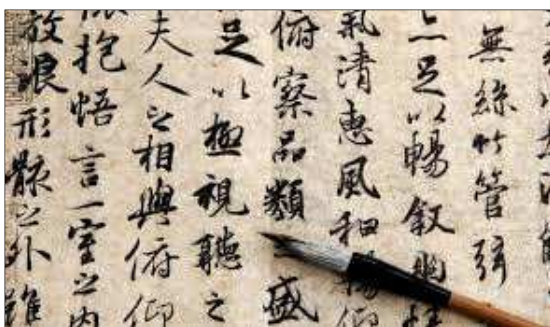 無絲竹管弦
足以暢叙幽
氣清惠風和暢仰
俯察品類盛
足以極視聽之
夫人之相與俯仰
抱悟言一室之内
放浪形骸之外雖